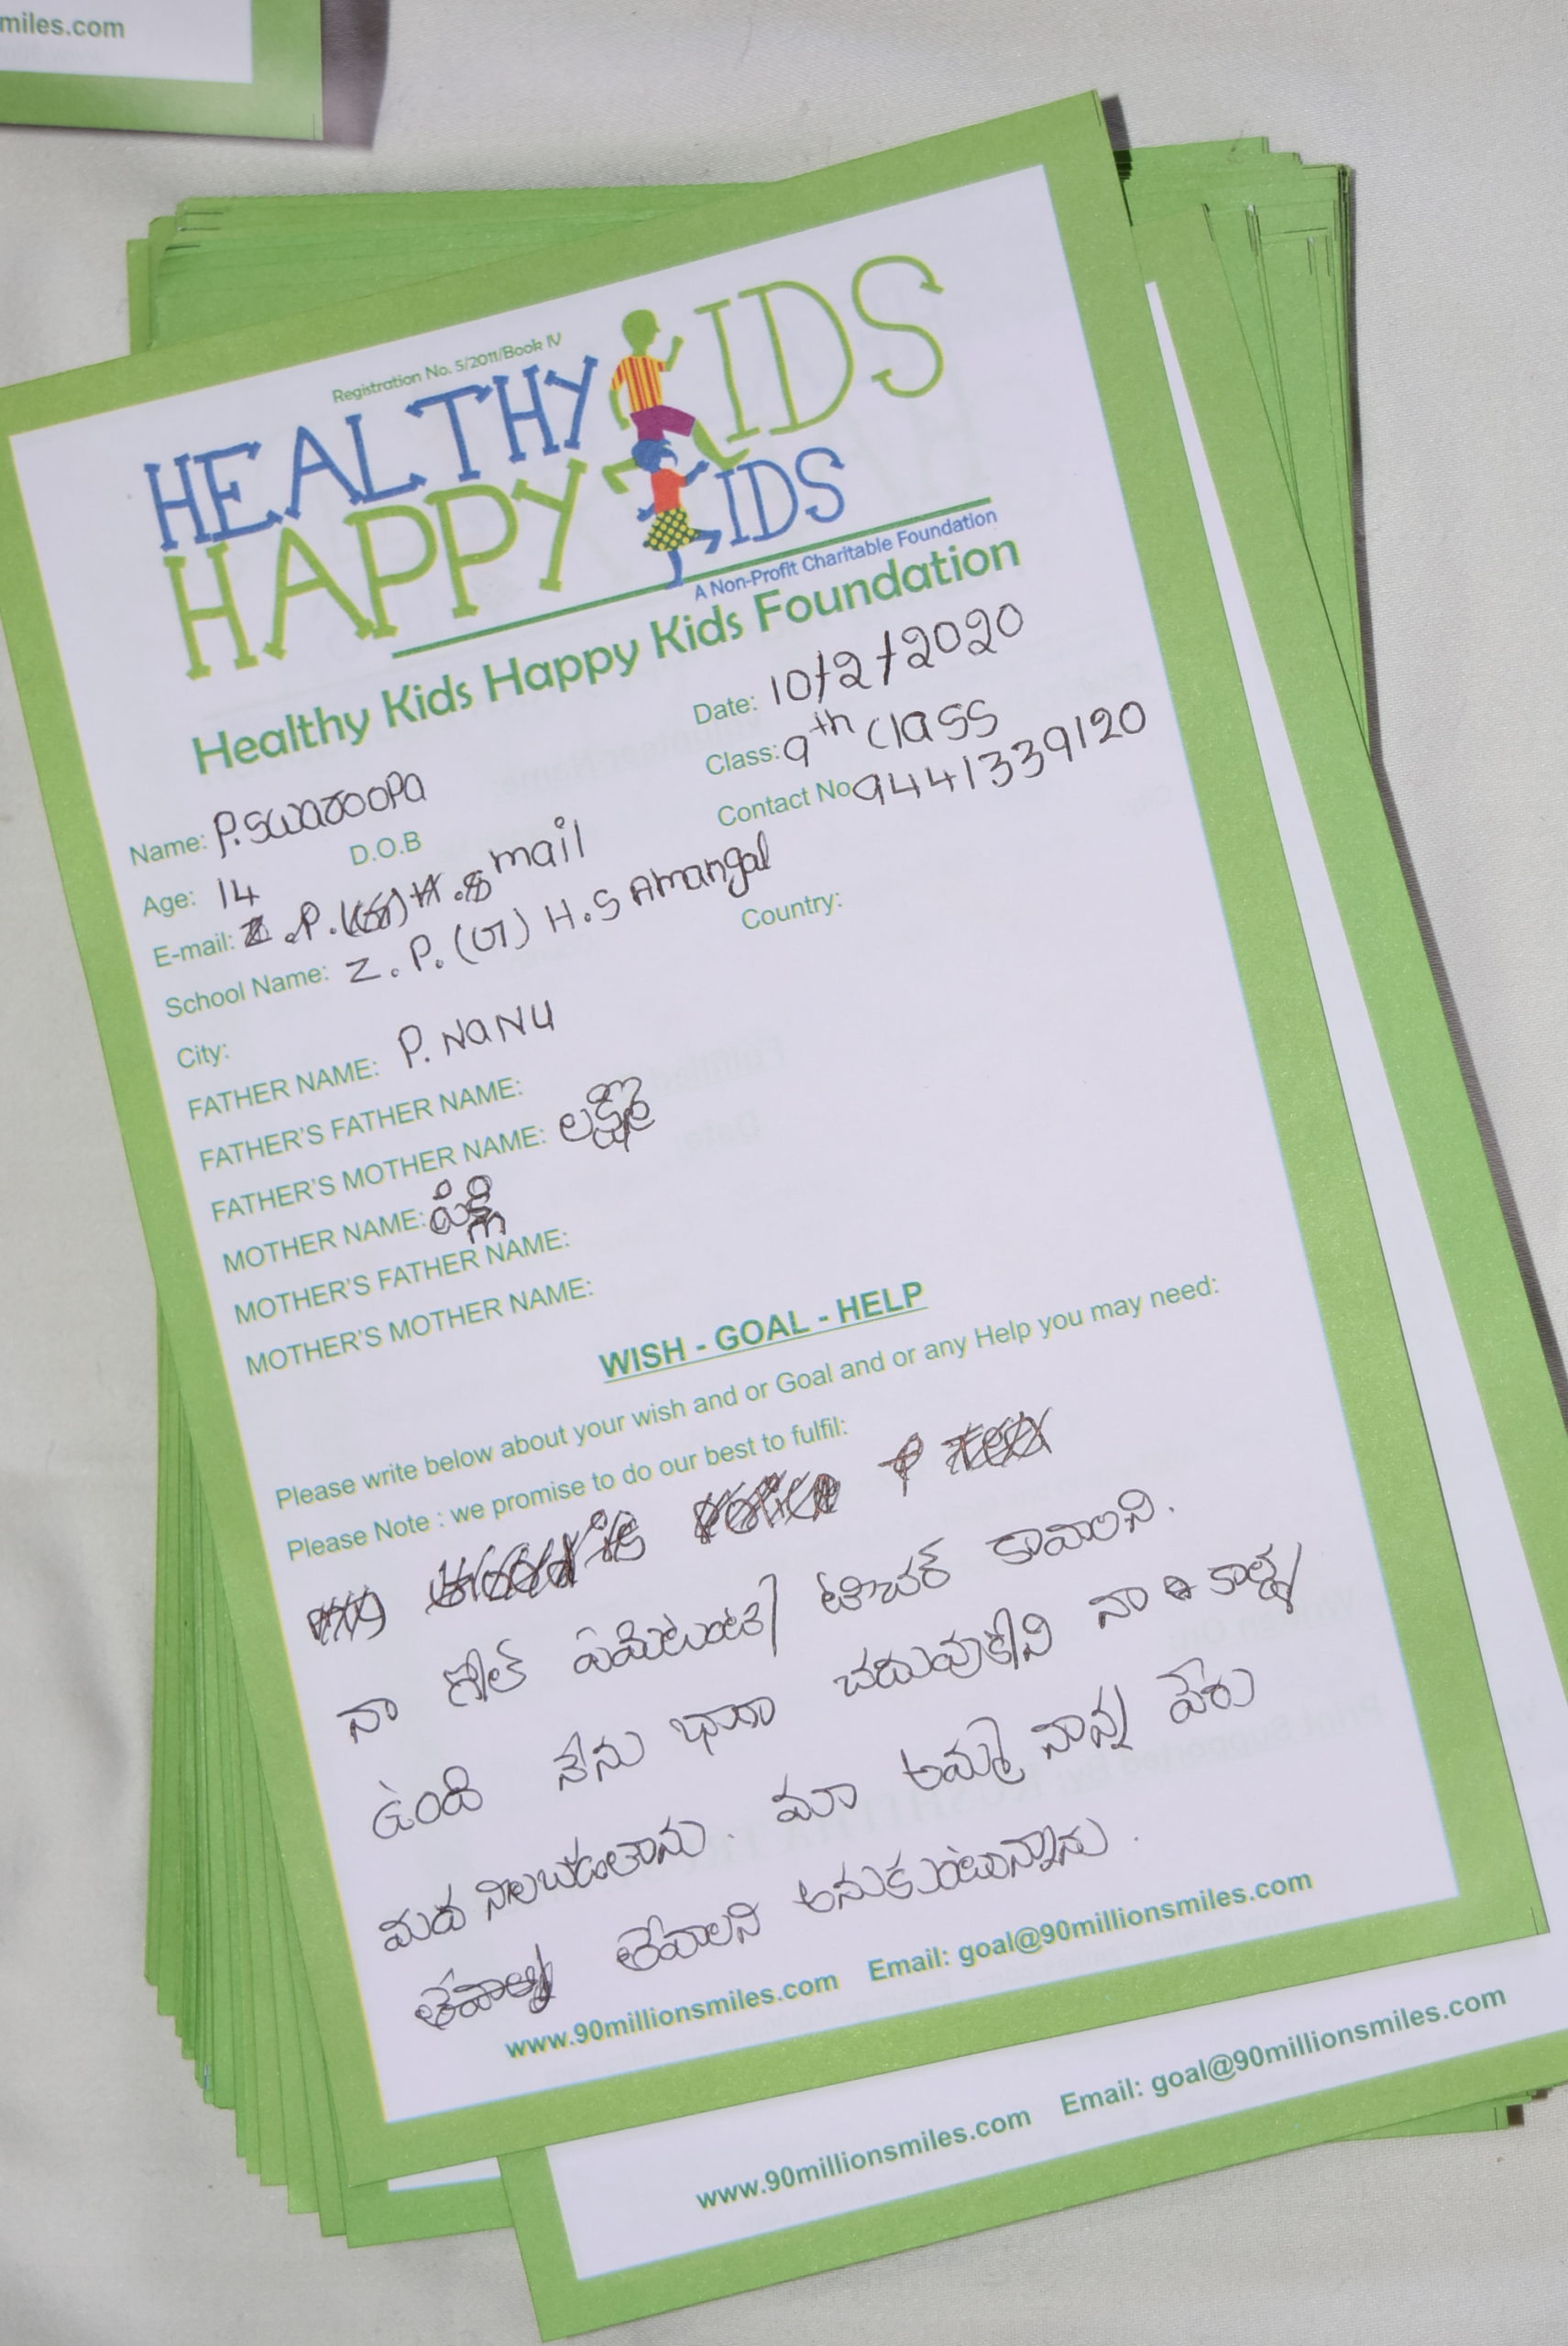 miles.com
Registration No. 5/2011/Book IV
HEALTHY KIDS
HAPPY KIDS
A Non-Profit Charitable Foundation
Healthy Kids Happy Kids Foundation
Date: 10/2/2020
Name: P.Swaroopa Class: 9th Class
Age: 14 D.O.B Contact No 9441339120
E-mail: mail
School Name: Z. P. (G) H.S Amangal
City: Country:
FATHER NAME: P. NaNu
FATHER'S FATHER NAME:
FATHER'S MOTHER NAME:
MOTHER NAME:
MOTHER'S FATHER NAME:
MOTHER'S MOTHER NAME:
WISH - GOAL - HELP
Please write below about your wish and or Goal and or any Help you may need:
Please Note : we promise to do our best to fulfil:
నా గోల్ ఏమిటంటే టీచర్ కావాలని.
ఉంది నేను భాగా చదువుకొని నా కాళ్ళ
మీద నిలబడతాను. మా అమ్మా నాన్న పేరు
తేవాలని అనుకుంటున్నాను.
www.90millionsmiles.com Email: goal@90millionsmiles.com
www.90millionsmiles.com Email: goal@90millionsmiles.com